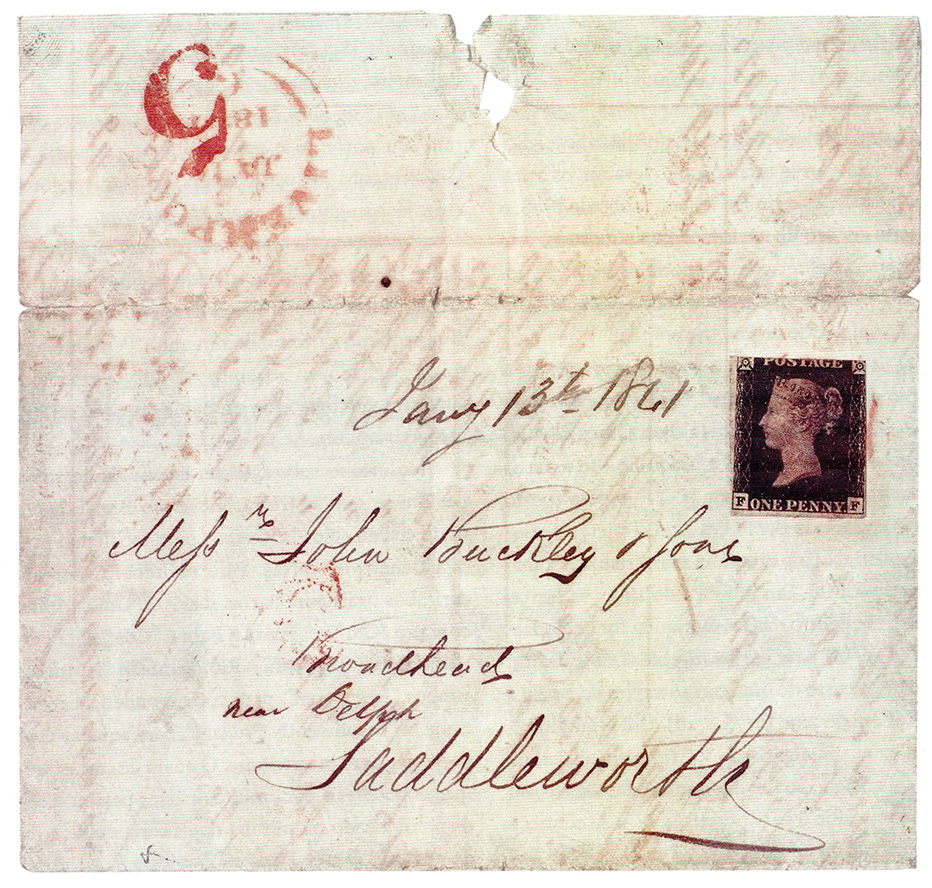 5
LIVERPOOL
JA
184
Jany 13th 1841
POSTAGE
F ONE PENNY F
Messrs John Buckley & Sons
Broadhead
near Delph
Saddleworth